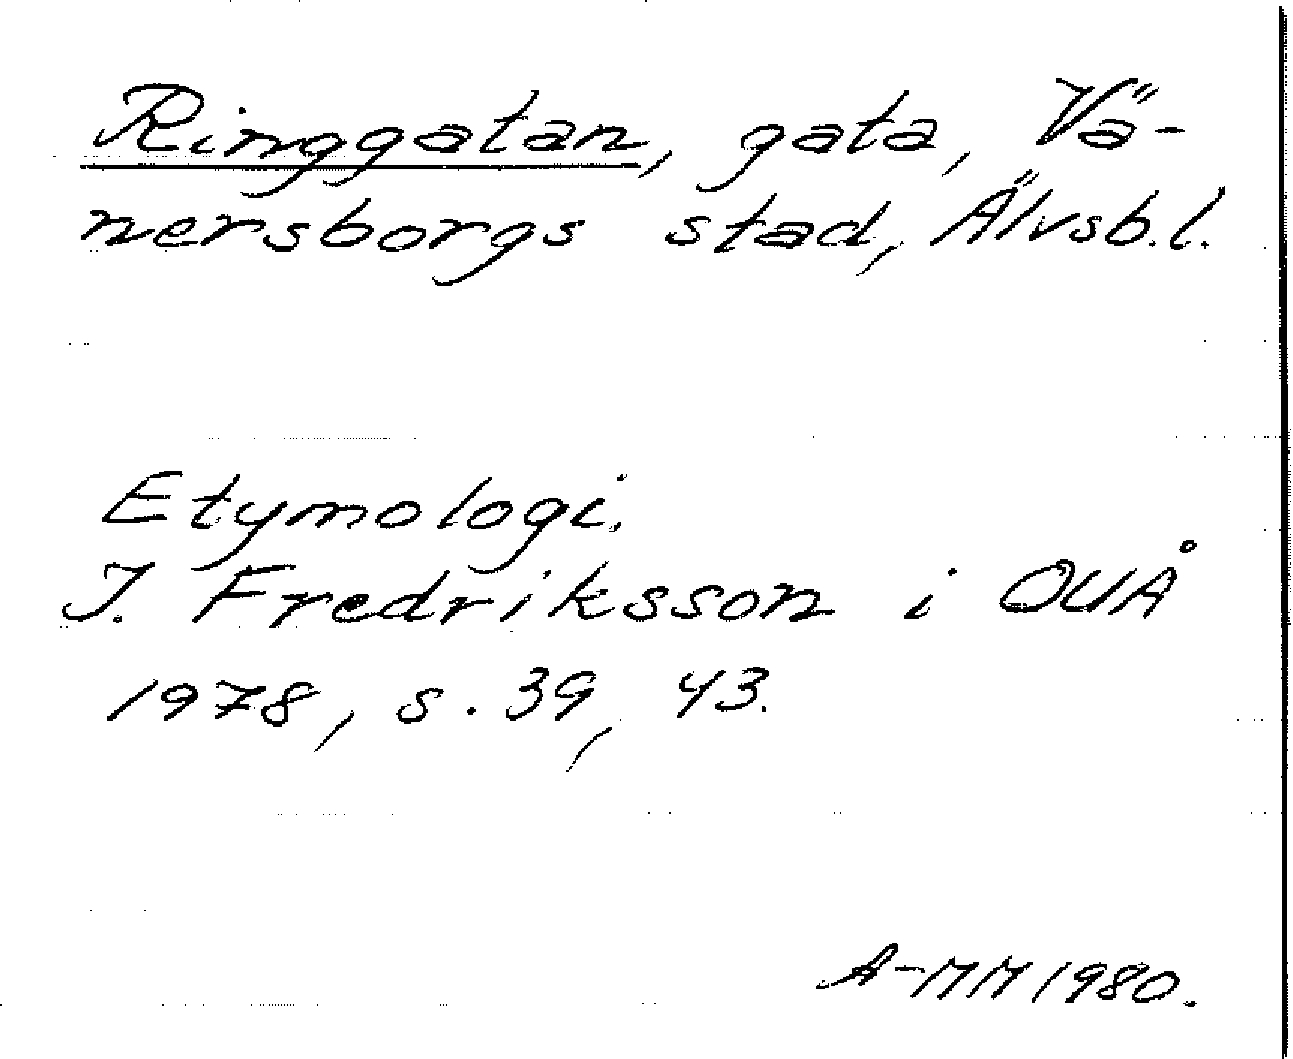 Ringgatan, gata, Vä-
nersborgs stad, Älvsb.l.
Etymologi.
I. Fredriksson i OUÅ
1978, s. 39, 43.
A-MM 1980.